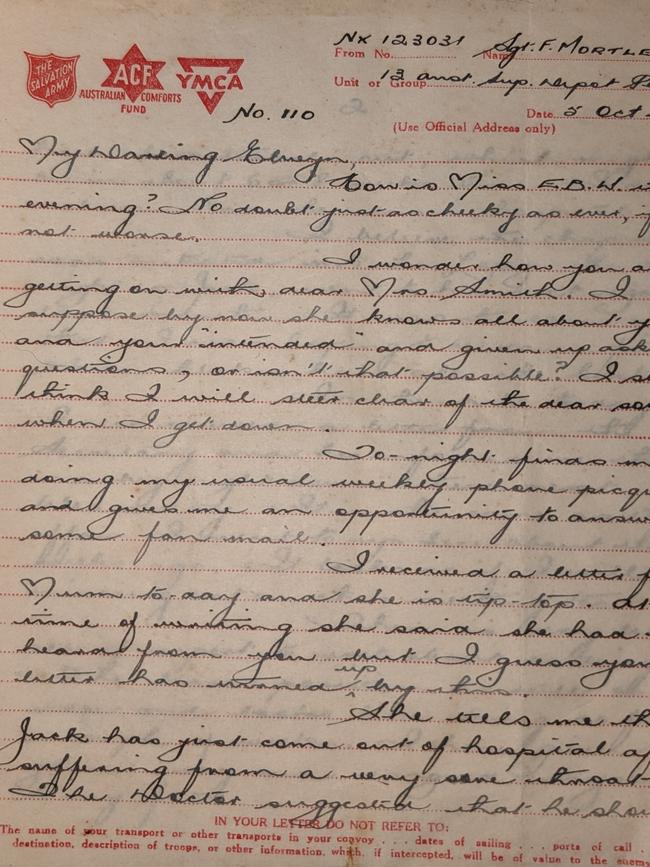 THE SALVATION ARMY
ACF
AUSTRALIAN COMFORTS FUND
YMCA
From No. NX 123031 Name Sgt. F. MORTLE
Unit or Group 13 Aust. Sup. Depot
No. 110
Date 5 Oct
(Use Official Address only)
My Darling Elwyn,
How is Miss E.B.W.
evening? No doubt just as cheeky as ever, if
not worse.
I wonder how you a
getting on with dear Mrs Smith. I
suppose by now she knows all about y
and your "intended" and given up ask
questions, or isn't that possible? I st
think I will steer clear of the dear so
when I get down.
To-night finds m
doing my usual weekly phone picqu
and gives me an opportunity to answ
some fan mail.
I received a letter f
Mum to-day and she is tip-top. At
time of writing she said she had
heard from you but I guess you
letter has turned up by this.
She tells me th
Jack has just come out of hospital af
suffering from a very sore throat
The Doctor suggested that he shou
IN YOUR LETTER DO NOT REFER TO:
The name of your transport or other transports in your convoy . . . dates of sailing . . . ports of call . .
destination, description of troops, or other information, which, if intercepted, will be of value to the enemy